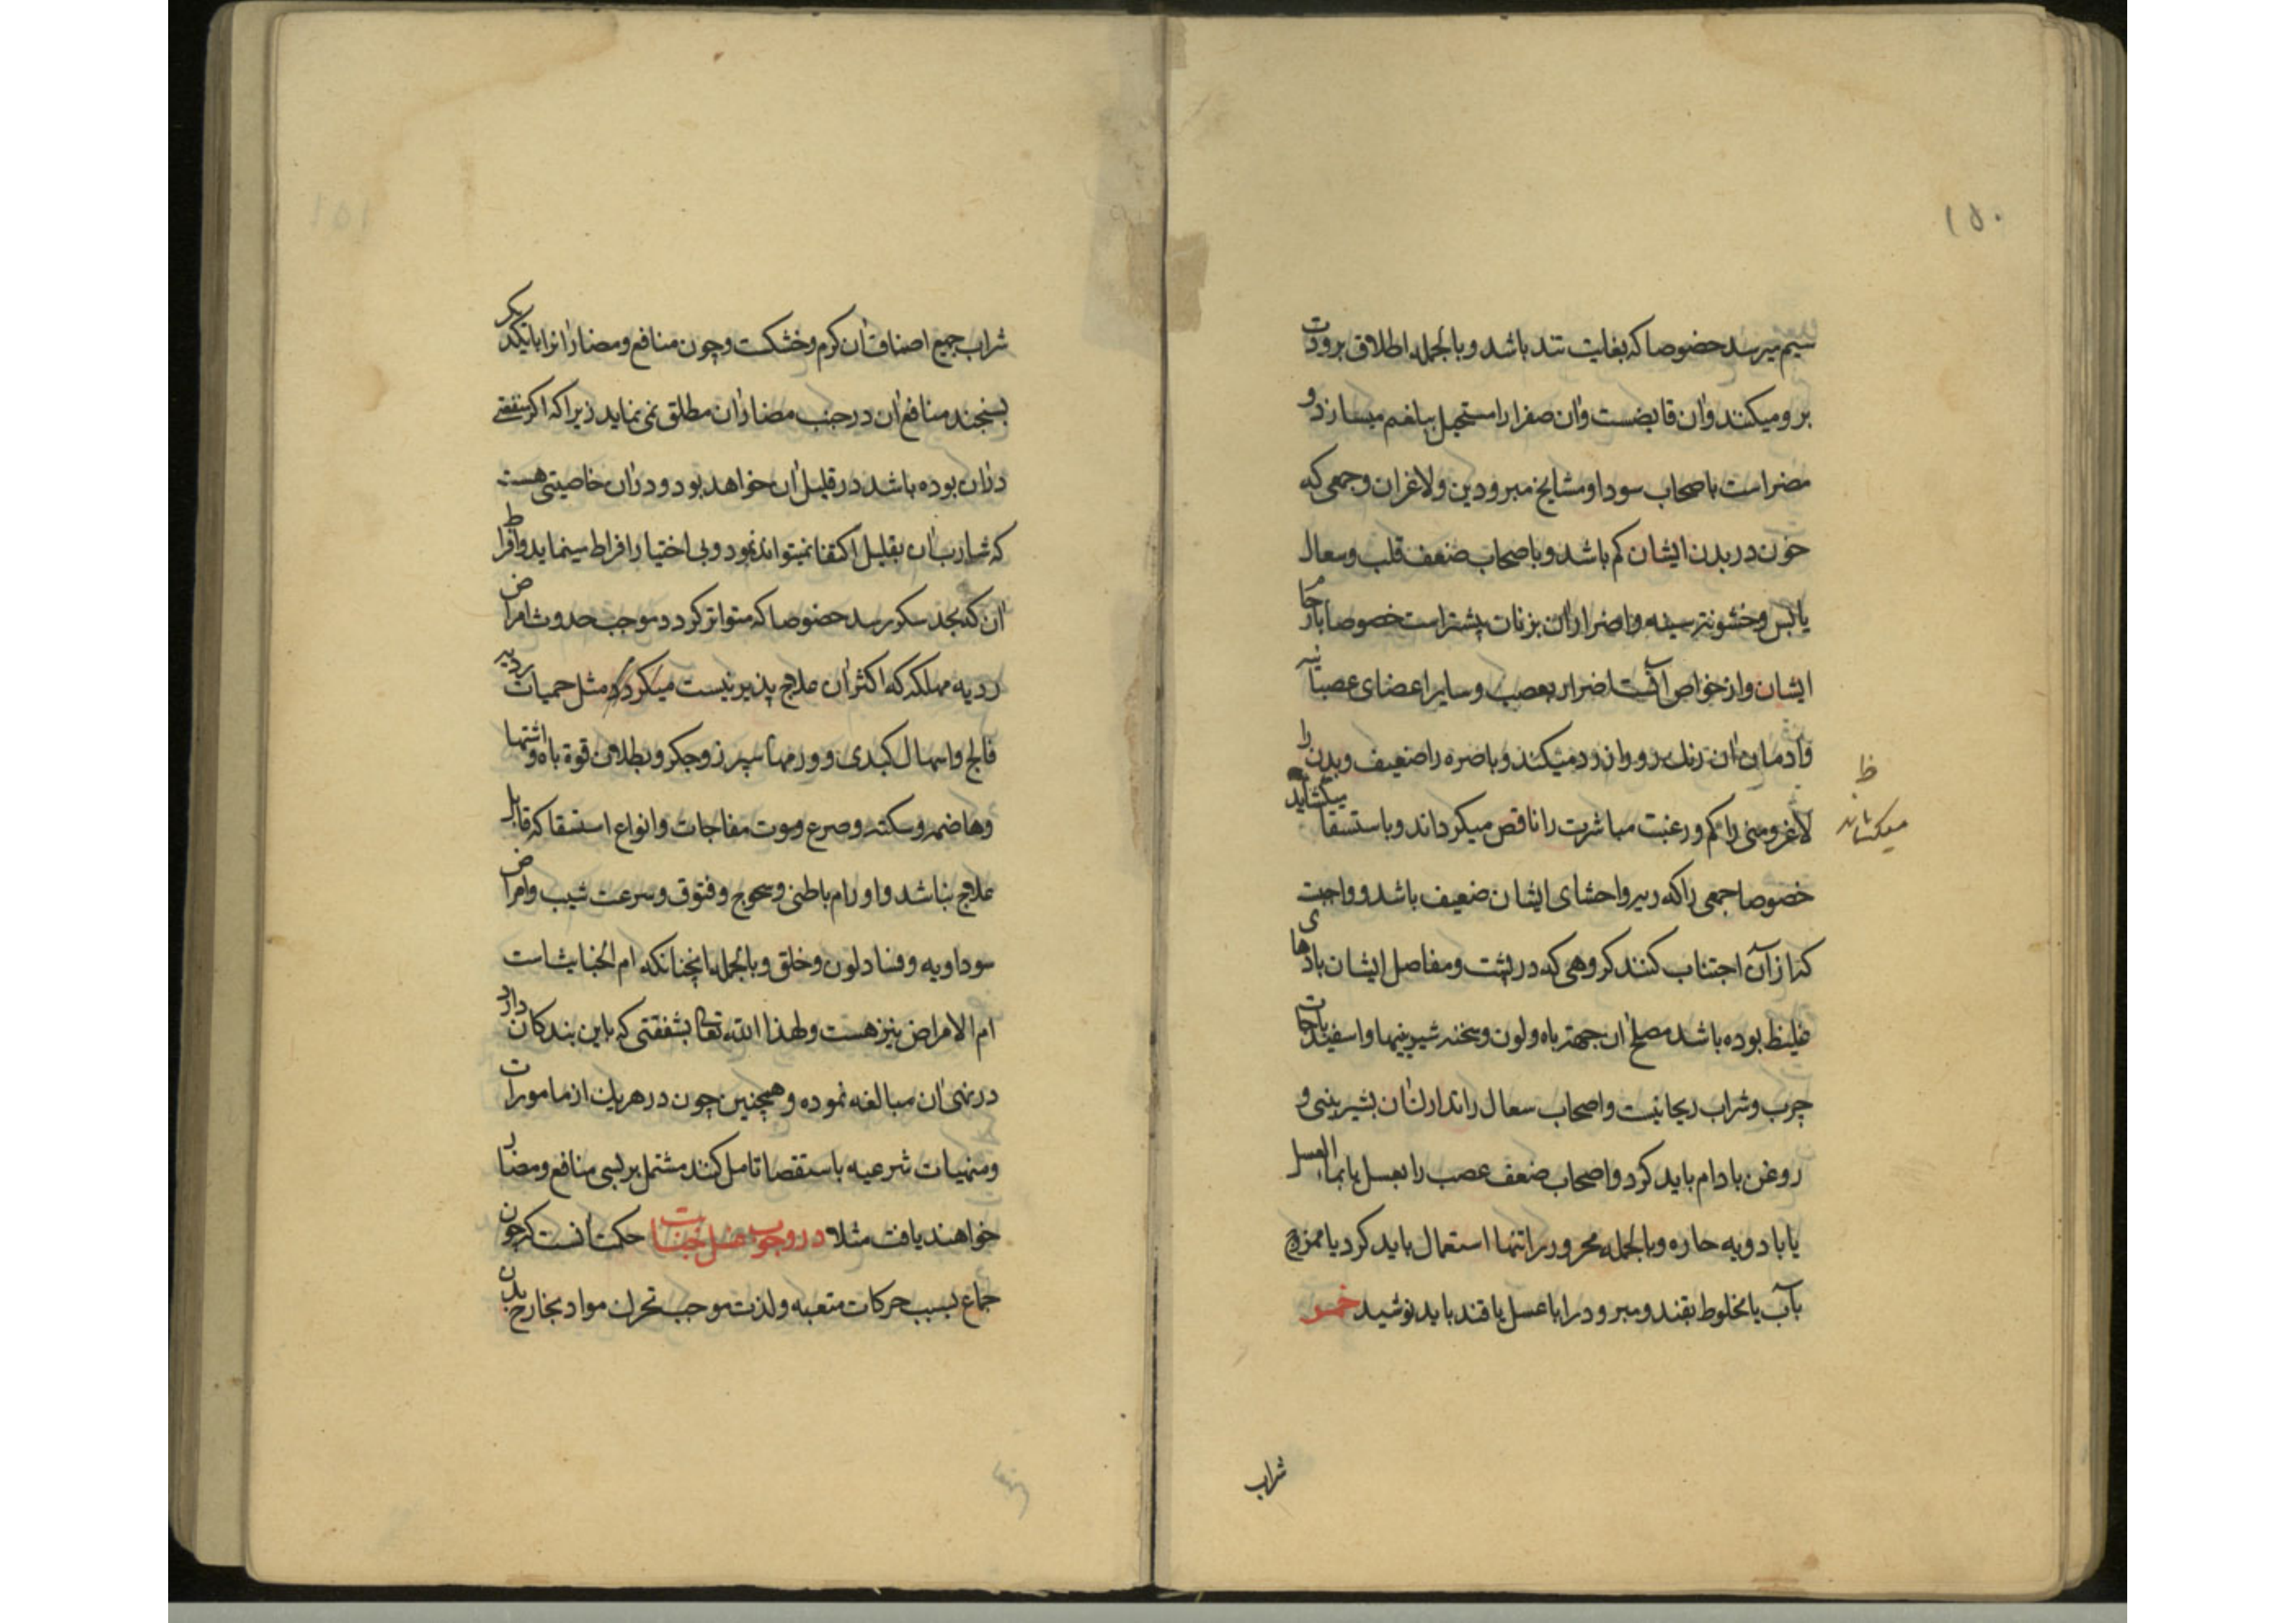 ۱۵۰
سیم میرسد خصوصا که بغایت تند باشد و بالجمله اطلاق برودت
برو میکنند وآن قابضست وآن صفرا را مستحیل ببلغم میسازد و
مضر است باصحاب سودا ومشایخ مبرودین ولاغران وجمعی که
خون در بدن ایشان کم باشد و باصحاب ضعف قلب وسعال
یابس وخشونت سینه واضرار آن بزنان بیشتر است خصوصا بارحام
ایشان واز خواص آنست اضرار بعصب وسایر اعضای عصبانیه
وادمان آن رنک رو و ان زرد میکند وباصره را ضعیف وبدن را
لاغر ومنی را کم ورغبت مباشرت را ناقص میکرداند و باستسقا میکشاید
ظ
میکشاند
خصوصا جمعی را که وبر واحشای ایشان ضعیف باشد و واجبت
که از آن اجتناب کنند کروهی که در پشت ومفاصل ایشان بادهای
غلیظ بوده باشد مصلح آن جهة باه ولون وسخنه شیرینیها واسفیدباجات
چرب وشراب ریحانیت واصحاب سعال را تدارک آن بشیرینی و
روغن بادام باید کرد واصحاب ضعف عصب را بعسل یا بماء العسل
یا بادویه حاره وبالجمله محرور را تنها استعمال باید کرد یا ممزوج
بآب یا مخلوط بقند ومبرود را با عسل یا قند باید نوشید خمر
شراب
۱۵۱
شراب جمیع اصناف آن کرم وخشکست وچون منافع ومضار آنرا با یکدیکر
بسنجند منافع آن در جنب مضار آن مطلق نمی نماید زیرا که اکر منفعتی
در آن بوده باشد در قلیل آن خواهد بود و در آن خاصیتی هست
که شارب آن بقلیل اکتفا نمیتواند نمود وبی اختیار افراط مینماید وافراط
آن که بحد سکر رسد خصوصا که متواتر کردد موجب حدوث امراض
ردیه مهلکه که اکثر آن علاج پذیر نیست میکردد مثل حمیات ردیه
فالج واسهال کبدی و ورمهای سپرز وجکر وبطلان قوة باه واشتها
وهاضمه وسکته وصرع وموت مفاجات وانواع استسقا که قابل
علاج نباشد واورام باطنی وسحوج وفتوق وسرعت شیب وامراض
سوداویه وفساد لون وخلق وبالجمله انچنانکه ام الخبایث است
ام الامراض نیز هست ولهذا الله تعالی بشفقتی که باین بندکان دارد
در نهی آن مبالغه نموده وهمچنین چون در هریک از مامورات
ومنهیات شرعیه باستقصا تامل کنند مشتمل بر بسی منافع ومضار
خواهند یافت مثلا در وجوب غسل جنابت حکمت آنست که چون
جماع بسبب حرکات متعبه ولذت موجب تحرک مواد بخارج بدن